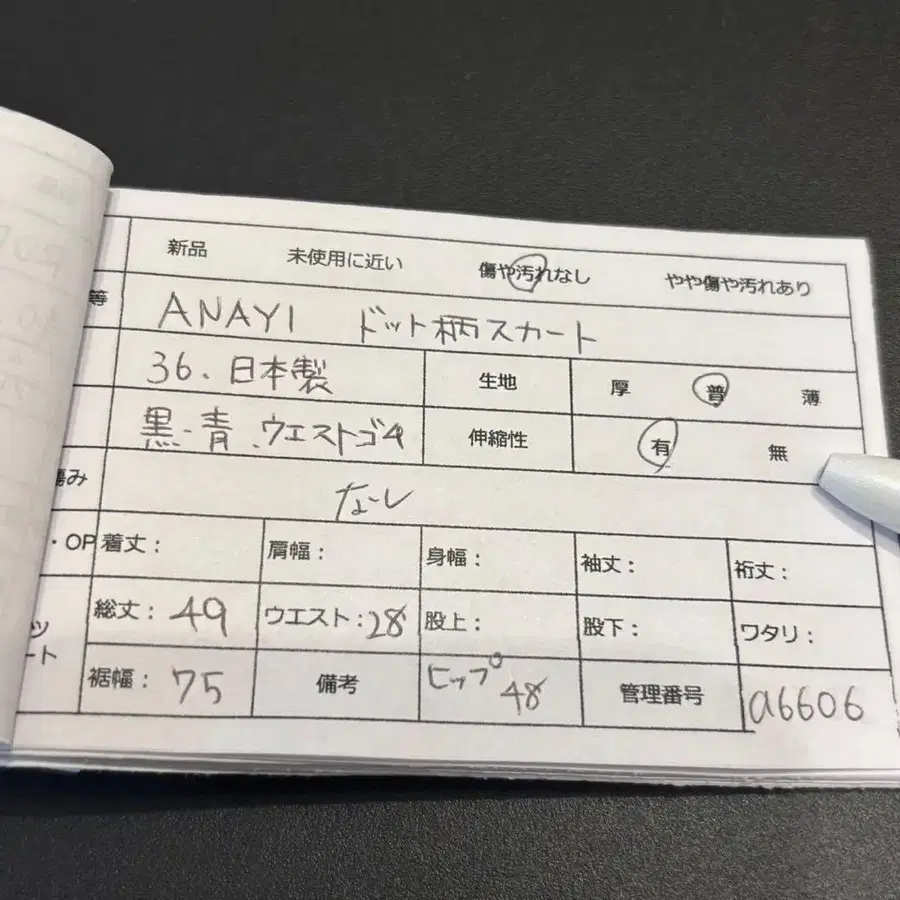 新品 未使用に近い 傷や汚れなし やや傷や汚れあり
等 ANAYI ドット柄スカート
36.日本製 生地 厚 普 薄
黒-青.ウエストゴム 伸縮性 有 無
傷み なし
・OP 着丈: 肩幅: 身幅: 袖丈: 裄丈:
総丈: 49 ウエスト:28 股上: 股下: ワタリ:
ツ
ート
裾幅: 75 備考 ヒップ48 管理番号 a6606